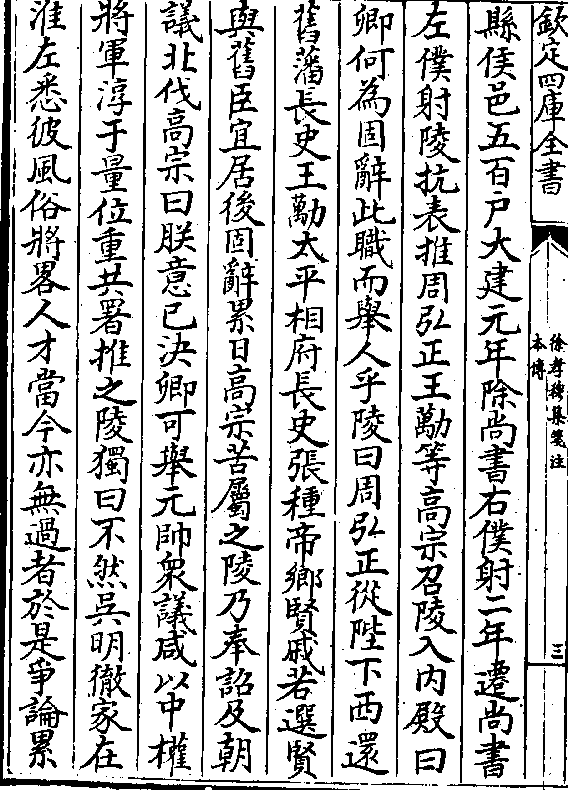 欽定四庫全書
徐孝穆集箋注
本傳
三
縣侯邑五百户大建元年除尚書右僕射二年遷尚書
左僕射陵抗表推周弘正王勱等高宗召陵入内殿曰
卿何為固辭此職而舉人乎陵曰周弘正從陛下西還
舊藩長史王勱太平相府長史張種帝鄉賢戚若選賢
與舊臣宜居後固辭累日高宗苦屬之陵乃奉詔及朝
議北伐高宗曰朕意已決卿可舉元帥衆議咸以中權
將軍淳于量位重共署推之陵獨曰不然吳明徹家在
淮左悉彼風俗將畧人才當今亦無過者於是爭論累